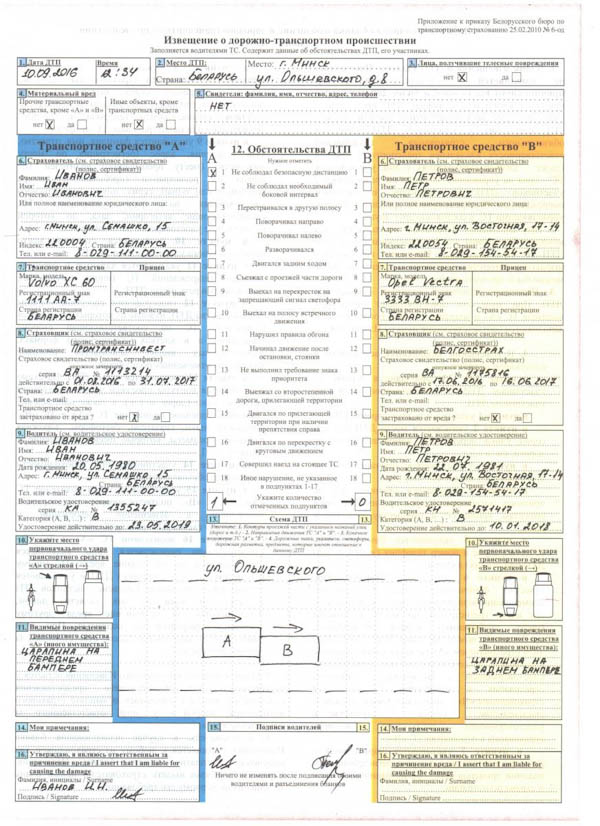 Приложение к приказу Белорусского бюро по
транспортному страхованию 25.02.2010 № 6-од
Извещение о дорожно-транспортном происшествии
Заполняется водителями ТС. Содержит данные об обстоятельствах ДТП, его участниках.
1. Дата ДТП Время
10.09.2016 12:34
2. Место ДТП: Место: г. Минск
Страна: БЕЛАРУСЬ ул. Ольшевского, д.8
3. Лица, получившие телесные повреждения
нет X да
4. Материальный вред
Прочие транспортные средства, кроме «А» и «В»
нет X да
Иные объекты, кроме транспортных средств
нет X да
5. Свидетели: фамилия, имя, отчество, адрес, телефон
НЕТ
Транспортное средство "А"
6. Страхователь (см. страховое свидетельство
(полис, сертификат))
Фамилия: ИВАНОВ
Имя: ИВАН
Отчество: ИВАНОВИЧ
Или полное наименование юридического лица:
Адрес: г.Минск, ул. СЕМАШКО, 15
Индекс: 220004 Страна: БЕЛАРУСЬ
Тел. или e-mail: 8-029-111-00-00
7. Транспортное средство Прицеп
Марка, модель
Volvo XC 60
Регистрационный знак Регистрационный знак
1111 АА-7
Страна регистрации Страна регистрации
БЕЛАРУСЬ
8. Страховщик (см. страховое свидетельство
(полис, сертификат))
Наименование: ПРОМТРАНСИНВЕСТ
Страховое свидетельство (полис, сертификат)
серия ВА № 1173214
действительно с 01.08.2016 по 31.07.2017
Страна: БЕЛАРУСЬ
Тел. или e-mail:
Транспортное средство
застраховано от вреда ? нет X да
9. Водитель (см. водительское удостоверение)
Фамилия: ИВАНОВ
Имя: ИВАН
Отчество: ИВАНОВИЧ
Дата рождения: 20.05.1980
Адрес: г.Минск, ул. СЕМАШКО, 15
Страна: БЕЛАРУСЬ
Тел. или e-mail: 8-029-111-00-00
Водительское удостоверение
серия КМ № 1355247
Категория (А, В, ...): В
Удостоверение действительно до: 23.05.2019
10. Укажите место первоначального удара
транспортного средства
«А» стрелкой (→)
11. Видимые повреждения
транспортного средства
«А» (иного имущества):
ЦАРАПИНА НА
ПЕРЕДНЕМ
БАМПЕРЕ
14. Мои примечания:
16. Утверждаю, я являюсь ответственным за
причинение вреда / I assert that I am liable for
causing the damage
Фамилия, инициалы / Surname
ИВАНОВ И.И.
Подпись / Signature
12. Обстоятельства ДТП
Нужное отметить
A B
X 1 Не соблюдал безопасную дистанцию 1
2 Не соблюдал необходимый боковой интервал 2
3 Перестраивался в другую полосу 3
4 Поворачивал направо 4
5 Поворачивал налево 5
6 Разворачивался 6
7 Двигался задним ходом 7
8 Съезжал с проезжей части дороги 8
9 Выехал на перекресток на запрещающий сигнал светофора 9
10 Выехал на полосу встречного движения 10
11 Нарушил правила обгона 11
12 Начинал движение после остановки, стоянки 12
13 Не выполнил требование знака приоритета 13
14 Выезжал со второстепенной дороги, прилегающей территории 14
15 Двигался по прилегающей территории при наличии препятствия справа 15
16 Двигался по перекрестку с круговым движением 16
17 Совершил наезд на стоящее ТС 17
18 Иное нарушение, не указанное в подпунктах 1-17 18
1 Укажите количество отмеченных подпунктов 0
13. Схема ДТП 13.
ул. Ольшевского
А
В
15. Подписи водителей 15.
"А" "В"
Ничего не изменять после подписания обоими
водителями и разъединения бланков
Транспортное средство "В"
6. Страхователь (см. страховое свидетельство
(полис, сертификат))
Фамилия: ПЕТРОВ
Имя: ПЕТР
Отчество: ПЕТРОВИЧ
Или полное наименование юридического лица:
Адрес: г. Минск, ул. Восточная, 17-14
Индекс: 220054 Страна: БЕЛАРУСЬ
Тел. или e-mail: 8-029-154-54-17
7. Транспортное средство Прицеп
Марка, модель
Opel Vectra
Регистрационный знак Регистрационный знак
3333 ВН-7
Страна регистрации Страна регистрации
БЕЛАРУСЬ
8. Страховщик (см. страховое свидетельство
(полис, сертификат))
Наименование: БЕЛГОССТРАХ
Страховое свидетельство (полис, сертификат)
серия ВА № 1175816
действительно с 17.06.2016 по 16.06.2017
Страна: БЕЛАРУСЬ
Тел. или e-mail:
Транспортное средство
застраховано от вреда ? нет X да
9. Водитель (см. водительское удостоверение)
Фамилия: ПЕТРОВ
Имя: ПЕТР
Отчество: ПЕТРОВИЧ
Дата рождения: 22.07.1981
Адрес: г. Минск, ул. Восточная, 17-14
Страна: БЕЛАРУСЬ
Тел. или e-mail: 8-029-154-54-17
Водительское удостоверение
серия КН № 2571417
Категория (А, В, ...): В
Удостоверение действительно до: 10.01.2018
10. Укажите место
первоначального удара
транспортного средства
«В» стрелкой (→)
11. Видимые повреждения
транспортного средства
«В» (иного имущества):
ЦАРАПИНА НА
ЗАДНЕМ БАМПЕРЕ
14. Мои примечания:
16. Утверждаю, я являюсь ответственным за
причинение вреда / I assert that I am liable for
causing the damage
Фамилия, инициалы / Surname
Подпись / Signature